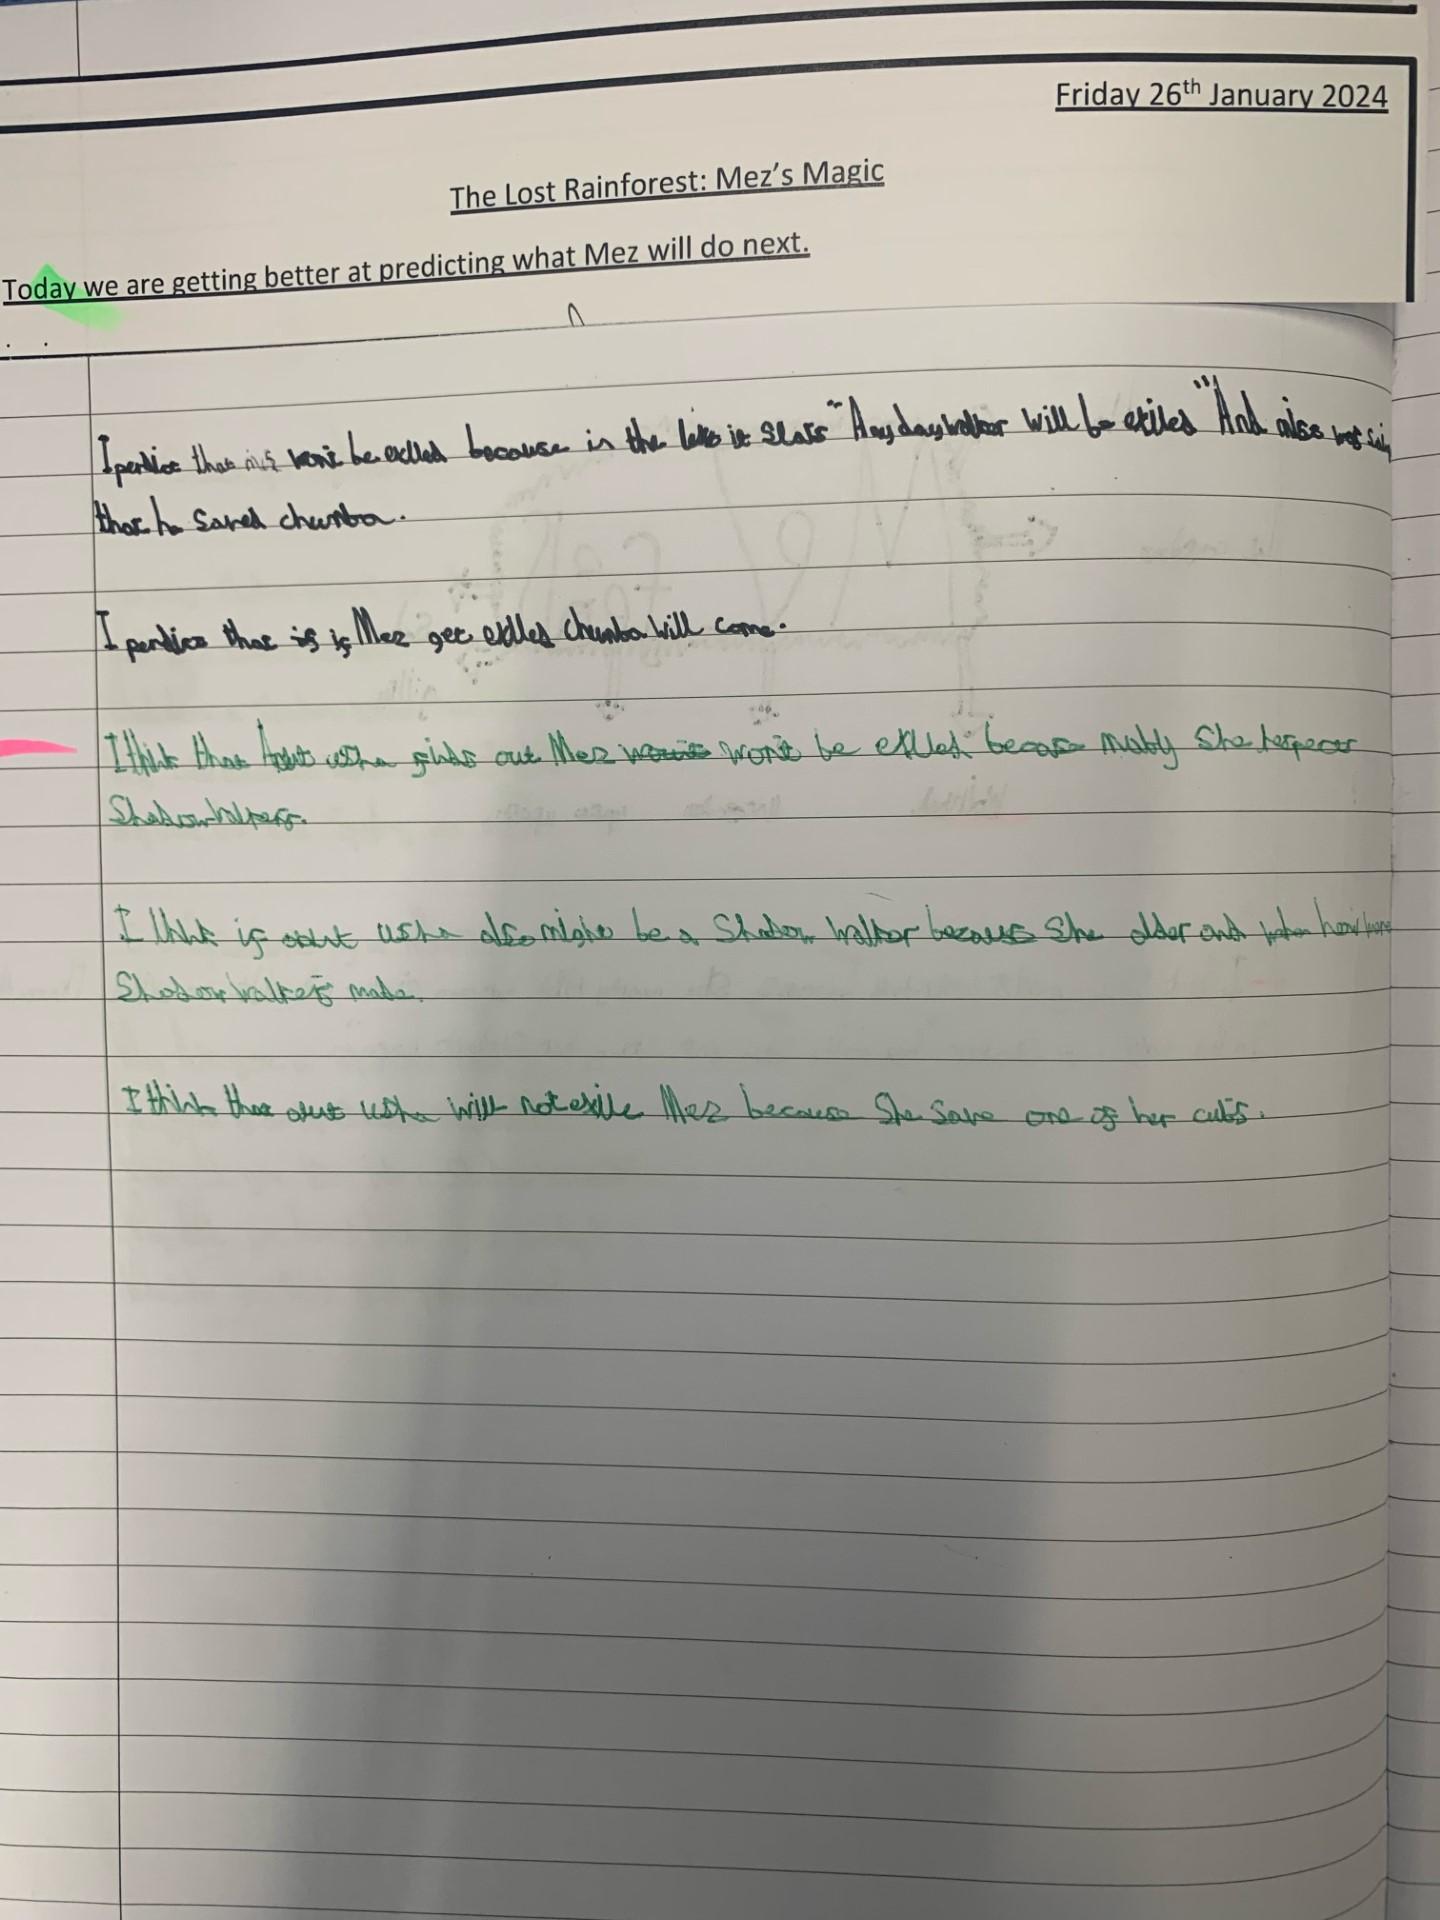 Friday 26th January 2024
The Lost Rainforest: Mez's Magic
Today we are getting better at predicting what Mez will do next.
I perdict that won't be exiled because in the it stats "Any daywalker will be exiles" And also
that he saved chumba.
I perdict that if is Mez get exiles chumba will come.
I think that Aunt usha finds out Mez won't be exiled because mably she respects
Shadowwalkers.
I think if aunt usha also might be a Shadow walker because she older and when
Shadow walkers made.
I think that aunt usha will not exile Mez because she save one of her cubs.